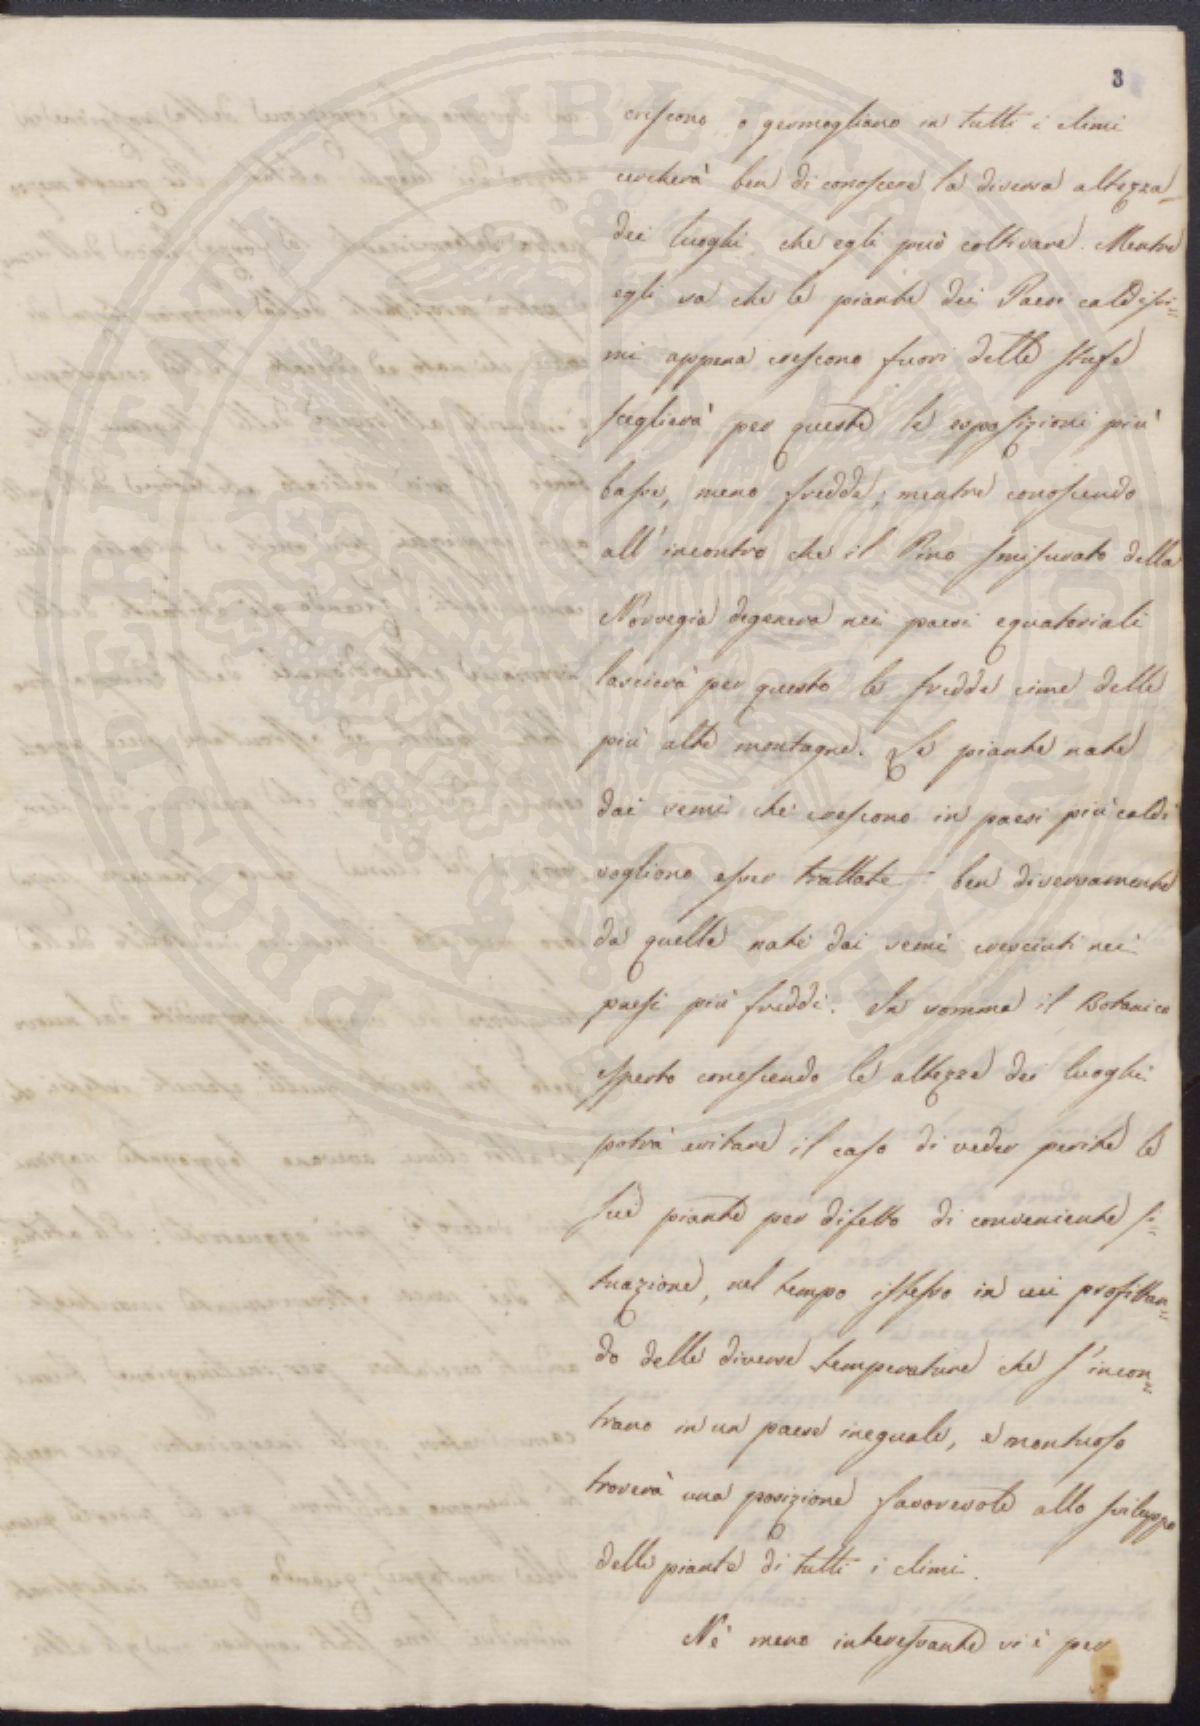 3
crescono, o germogliano in tutti i climi
cercherà ben di conoscere la diversa altezza
dei luoghi che egli può coltivare. Mentre
egli sa che le piante dei Paesi caldissi=
mi appena crescono fuori delle stufe
sceglierà per queste le esposizioni più
basse, meno fredde; mentre conoscendo
all'incontro che il Pino smisurato della
Norvegia degenera nei paesi equatoriali
lascierà per questo le fredde cime delle
più alte montagne. Le piante nate
dai semi che crescono in paesi più caldi
vogliono esser trattate ben diversamente
da quelle nate dai semi cresciuti nei
paesi più freddi. In somma il Botanico
esperto conoscendo le altezze dei luoghi
potrà evitare il caso di veder perire le
sue piante per difetto di conveniente si=
tuazione, nel tempo istesso in cui profittan=
do delle diverse temperature che s'incon=
trano in un paese ineguale, e montuoso
troverà una posizione favorevole allo sviluppo
delle piante di tutti i climi.
Nè meno interessante vi è per